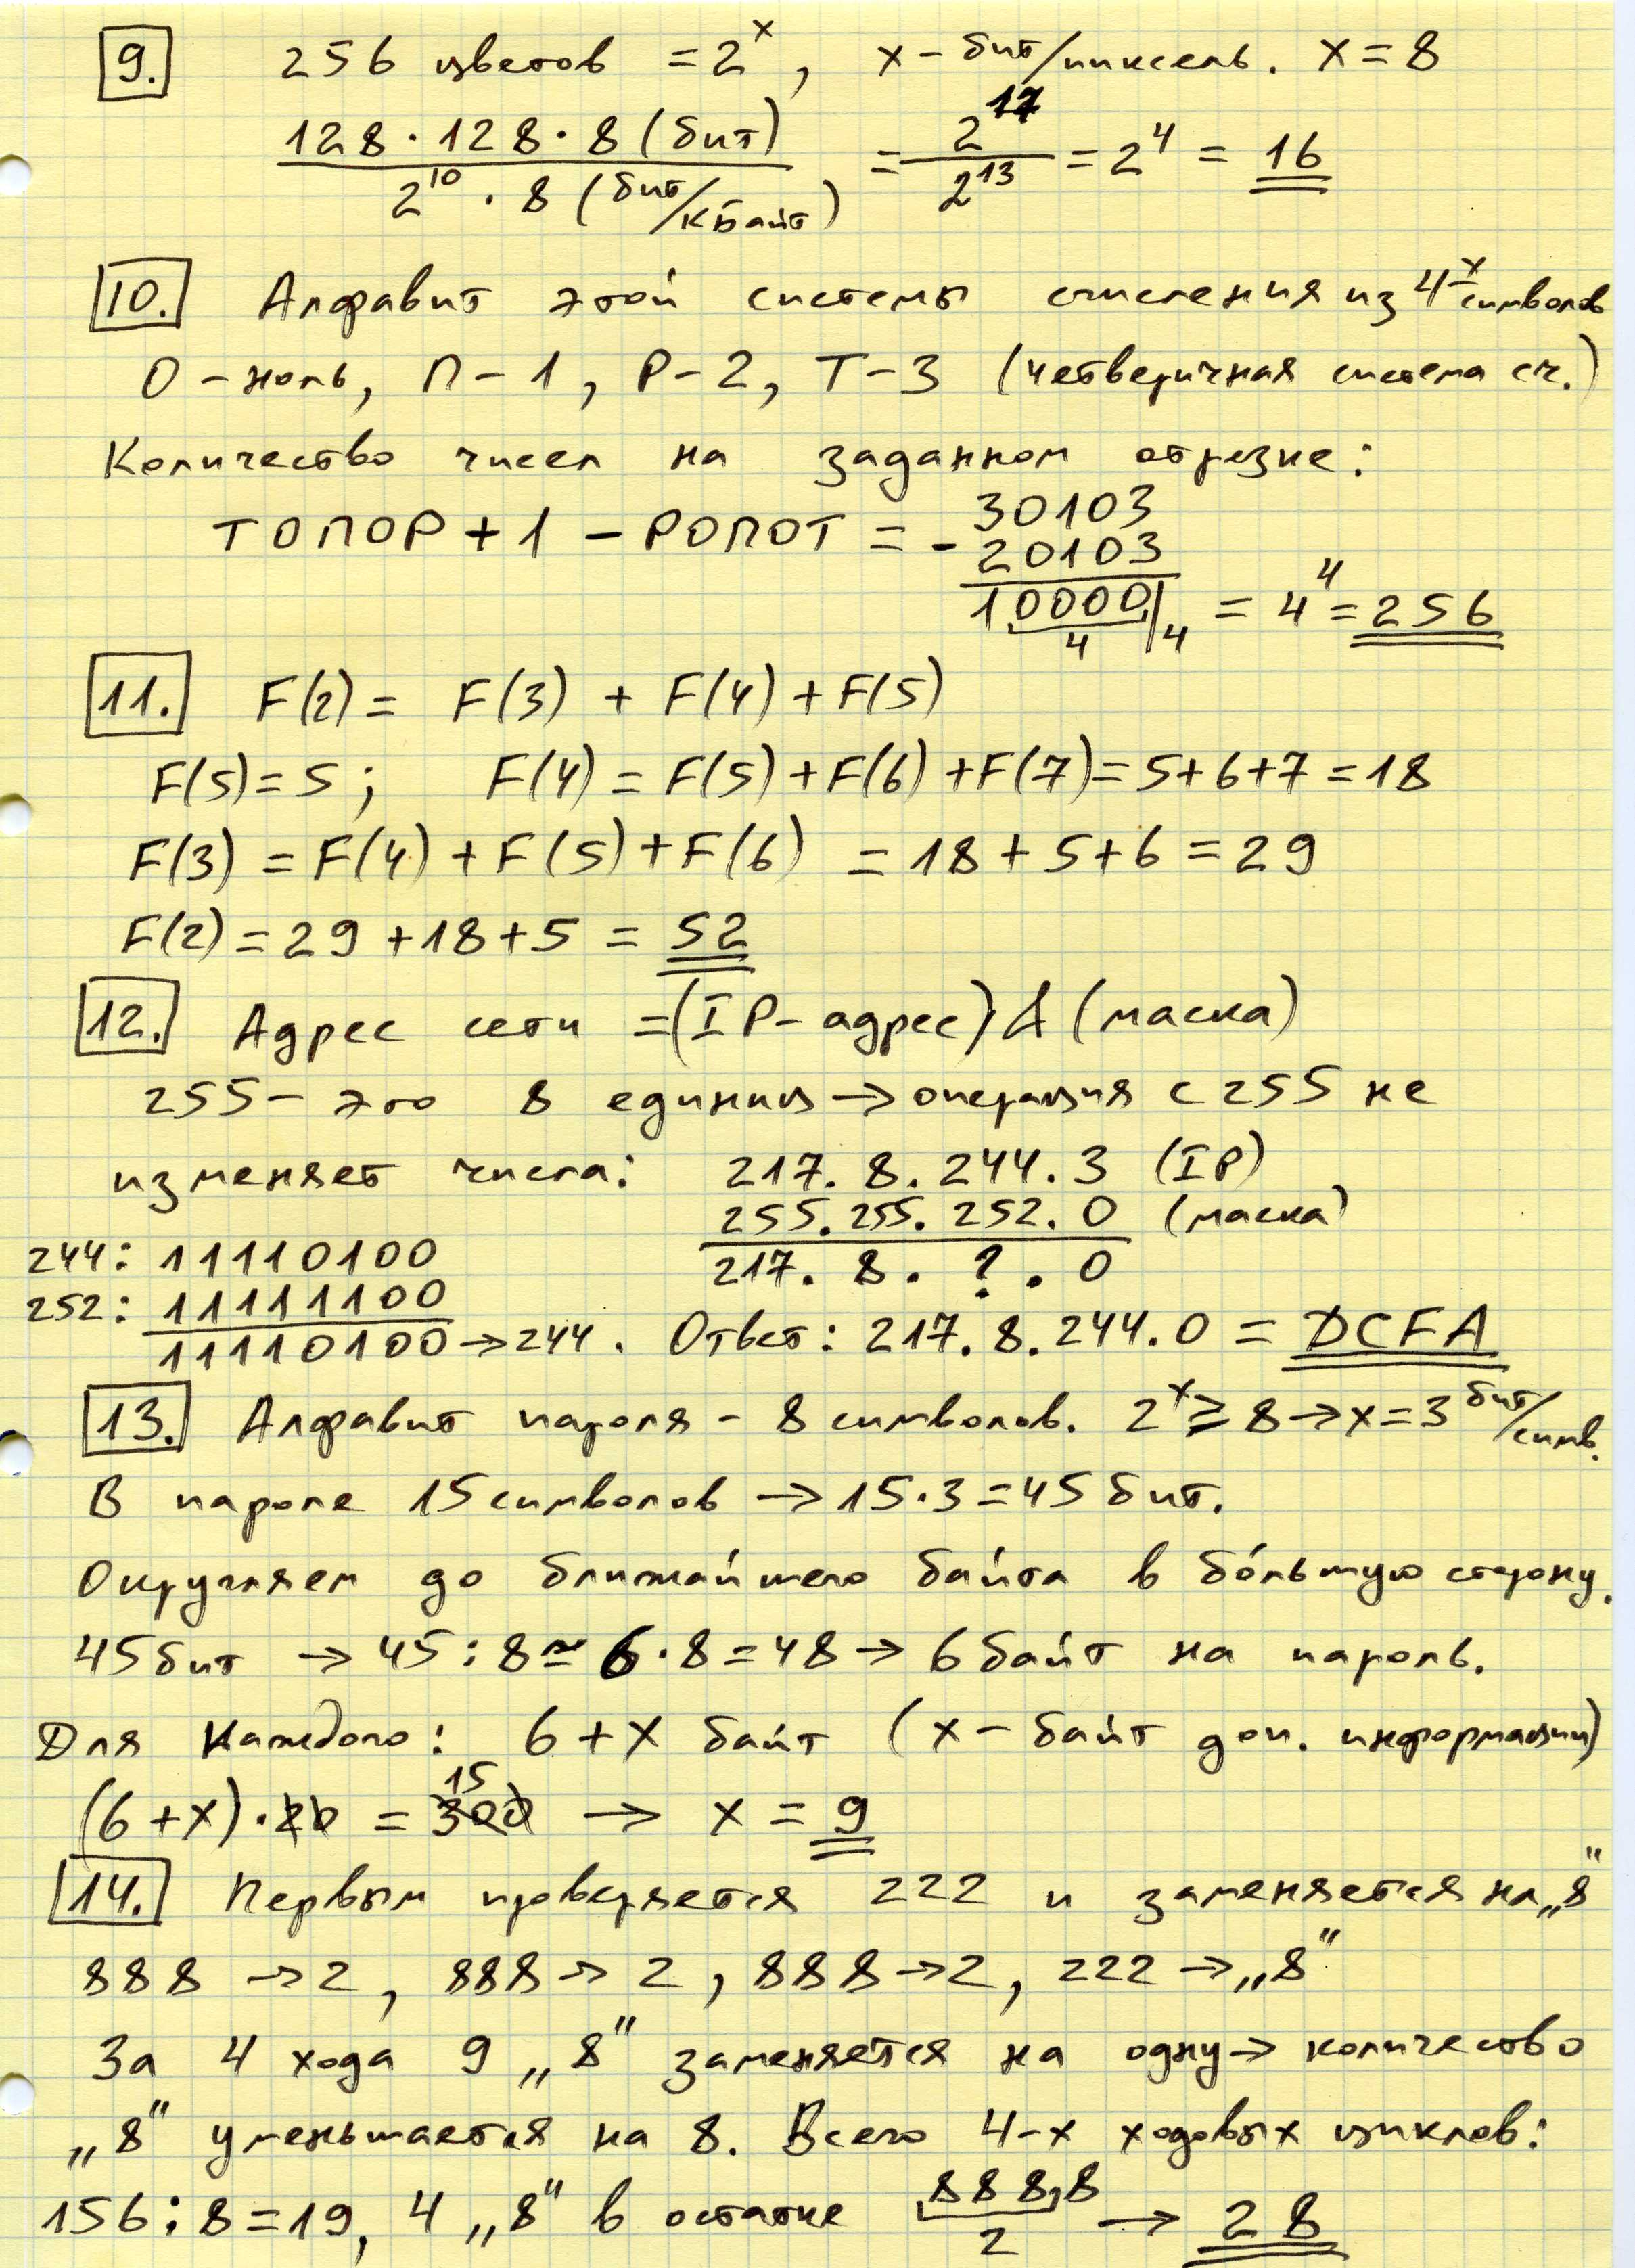 9. 256 цветов = 2^x, x – бит/пиксель. x = 8
128 · 128 · 8 (бит) / 2^10 · 8 (бит/кБайт) = 2^17 / 2^13 = 2^4 = 16
10. Алфавит этой системы счисления из 4-х символов
О – ноль, П – 1, Р – 2, Т – 3 (четверичная система сч.)
Количество чисел на заданном отрезке:
ТОПОР + 1 – РОПОТ = 30103
- 20103
10000|4 = 4^4 = 256
4
11. F(2) = F(3) + F(4) + F(5)
F(5) = 5; F(4) = F(5) + F(6) + F(7) = 5+6+7 = 18
F(3) = F(4) + F(5) + F(6) = 18 + 5 + 6 = 29
F(2) = 29 + 18 + 5 = 52
12. Адрес сети = (IP – адрес) Λ (маска)
255 – это 8 единиц → операция с 255 не
изменяет числа: 217. 8. 244. 3 (IP)
255. 255. 252. 0 (маска)
217. 8. ? . 0
244: 11110100
252: 11111100
11110100 → 244. Ответ: 217. 8. 244. 0 = DCFA
13. Алфавит пароля – 8 символов. 2^x ≥ 8 → x = 3 бит/симв.
В пароле 15 символов → 15·3 = 45 бит.
Округляем до ближайшего байта в бо́льшую сторону.
45 бит → 45 : 8 ≃ 6·8 = 48 → 6 байт на пароль.
Для каждого: 6 + x байт (x – байт доп. информации)
15
(6 + x) · 20 = 300 → x = 9
14. Первым проверяется 222 и заменяется на „8"
888 → 2, 888 → 2, 888 → 2, 222 → „8"
За 4 хода 9 „8" заменяется на одну → количество
„8" уменьшается на 8. Всего 4-х ходовых циклов:
156 : 8 = 19, 4 „8" в остатке 888,8 → 28
2